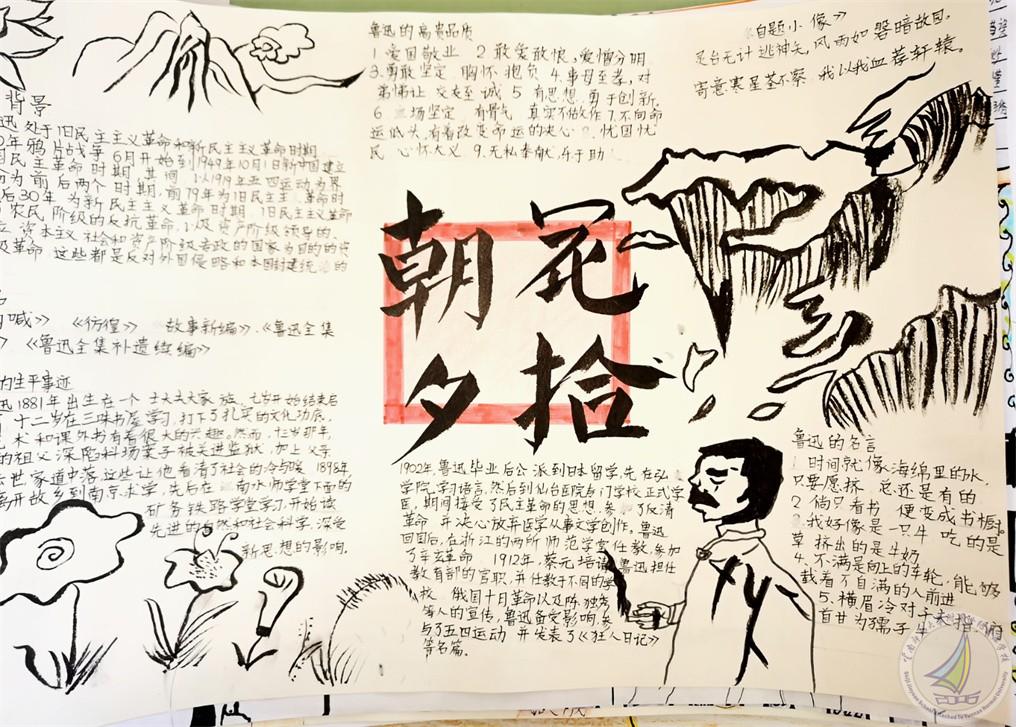 鲁迅的高贵品质
1 爱国敬业 2 敢爱敢恨,爱憎分明
3.勇敢坚定 胸怀抱负 4.事母至孝,对
弟悌让 交友至诚 5 有思想 勇于创新.
6 立场坚定 有骨气 真实不做作 7.不向命
运低头,有着改变命运的决心 8 忧国忧
民 心怀大义 9.无私奉献,乐于助
《自题小像》
灵台无计逃神矢,风雨如磐暗故园。
寄意寒星荃不察 我以我血荐轩辕。
背景
迅处于旧民主主义革命和新民主主义革命时期
0年鸦片战争6月开始到1949年10月1日新中国建立
国民主革命时期 其间 以1919年五四运动为界
分为前后两个时期.前79年为旧民主主 革命时
后30年为新民主主义革命时期 旧民主主义革命
农民阶级的反抗革命,以及资产阶级领导的、
立资本主义社会和资产阶级专政的国家为目的的资
级革命 这些都是反对外国侵略和本国封建统 的
喊》 《彷徨》 故事新编》.《鲁迅全集
《鲁迅全集补遗续编》
生平事迹
迅1881年出生在一个士大夫大家族、七岁开始
十二岁在三味书屋学习,打下了扎实的文化功底。
术和课外书有着很大的兴趣。然而,
的祖父深陷科场案子被关进监狱 加上父亲
世家道中落这些让他看清了社会的冷与暖 1898年
离开故乡到南京求学,先后在 南水师学堂下面的
矿务铁路学堂学习.开始读
先进的自然和社会科学,深受
新思想的影响.
朝花
夕拾
1902年,鲁迅毕业后公派到日本留学,先在弘
学院 学习语言,然后到仙台医院专门学校 正式学
医,期间接受了民主革命的思想.参 了反清
革命 并决心放弃医学从事文学创作。鲁迅
回国后,在浙江的两所师范学堂任教,参加
了辛亥革命 1912年,蔡元培请鲁迅担任
教育部的官职,并任教于不同的学
校 俄国十月革命以及陈独秀
等人的宣传,鲁迅备受影响,参
与了五四运动 并发表了《狂人日记》
等名篇。
鲁迅的名言
1 时间就像海绵里的水
只要愿挤 总还是有的
2 倘只看书 便变成书橱
3.我好像是一只牛 吃的是
草 挤出的是牛奶
4.不满是向上的车轮,能够
载着不自满的人前进
5.横眉冷对千夫指 俯
首甘为孺子牛